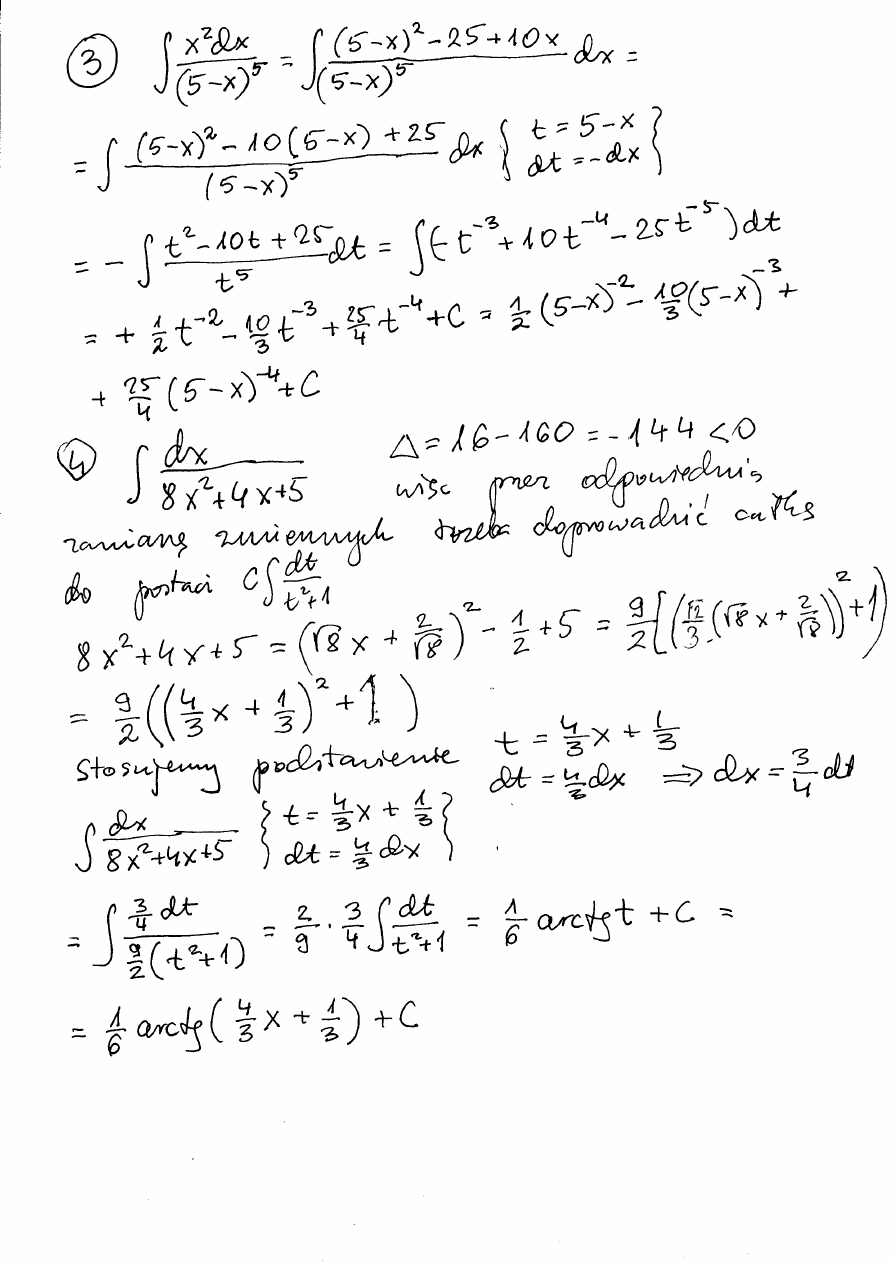 ③ ∫ x²dx/(5-x)⁵ = ∫ ((5-x)² - 25 + 10x)/(5-x)⁵ dx =
= ∫ ((5-x)² - 10(5-x) + 25)/(5-x)⁵ dx { t = 5-x dt = -dx }
= - ∫ (t² - 10t + 25)/t⁵ dt = ∫(-t⁻³ + 10t⁻⁴ - 25t⁻⁵)dt
= + 1/2 t⁻² - 10/3 t⁻³ + 25/4 t⁻⁴ + C = 1/2 (5-x)⁻² - 10/3 (5-x)⁻³ +
+ 25/4 (5-x)⁻⁴ + C
④ ∫ dx/(8x²+4x+5) Δ = 16 - 160 = -144 < 0
więc przez odpowiednią
zamianę zmiennych trzeba doprowadzić całkę
do postaci C∫ dt/(t²+1)
8x²+4x+5 = (√8 x + 2/√8)² - 1/2 + 5 = 9/2 [(√2/3 (√8 x + 2/√8))² + 1)
= 9/2 ((4/3 x + 1/3)² + 1)
Stosujemy podstawienie t = 4/3 x + 1/3
dt = 4/3 dx ⇒ dx = 3/4 dt
∫ dx/(8x²+4x+5) { t = 4/3 x + 1/3 dt = 4/3 dx }
= ∫ (3/4 dt)/(9/2 (t²+1)) = 2/9 · 3/4 ∫ dt/(t²+1) = 1/6 arctg t + C =
= 1/6 arctg (4/3 x + 1/3) + C